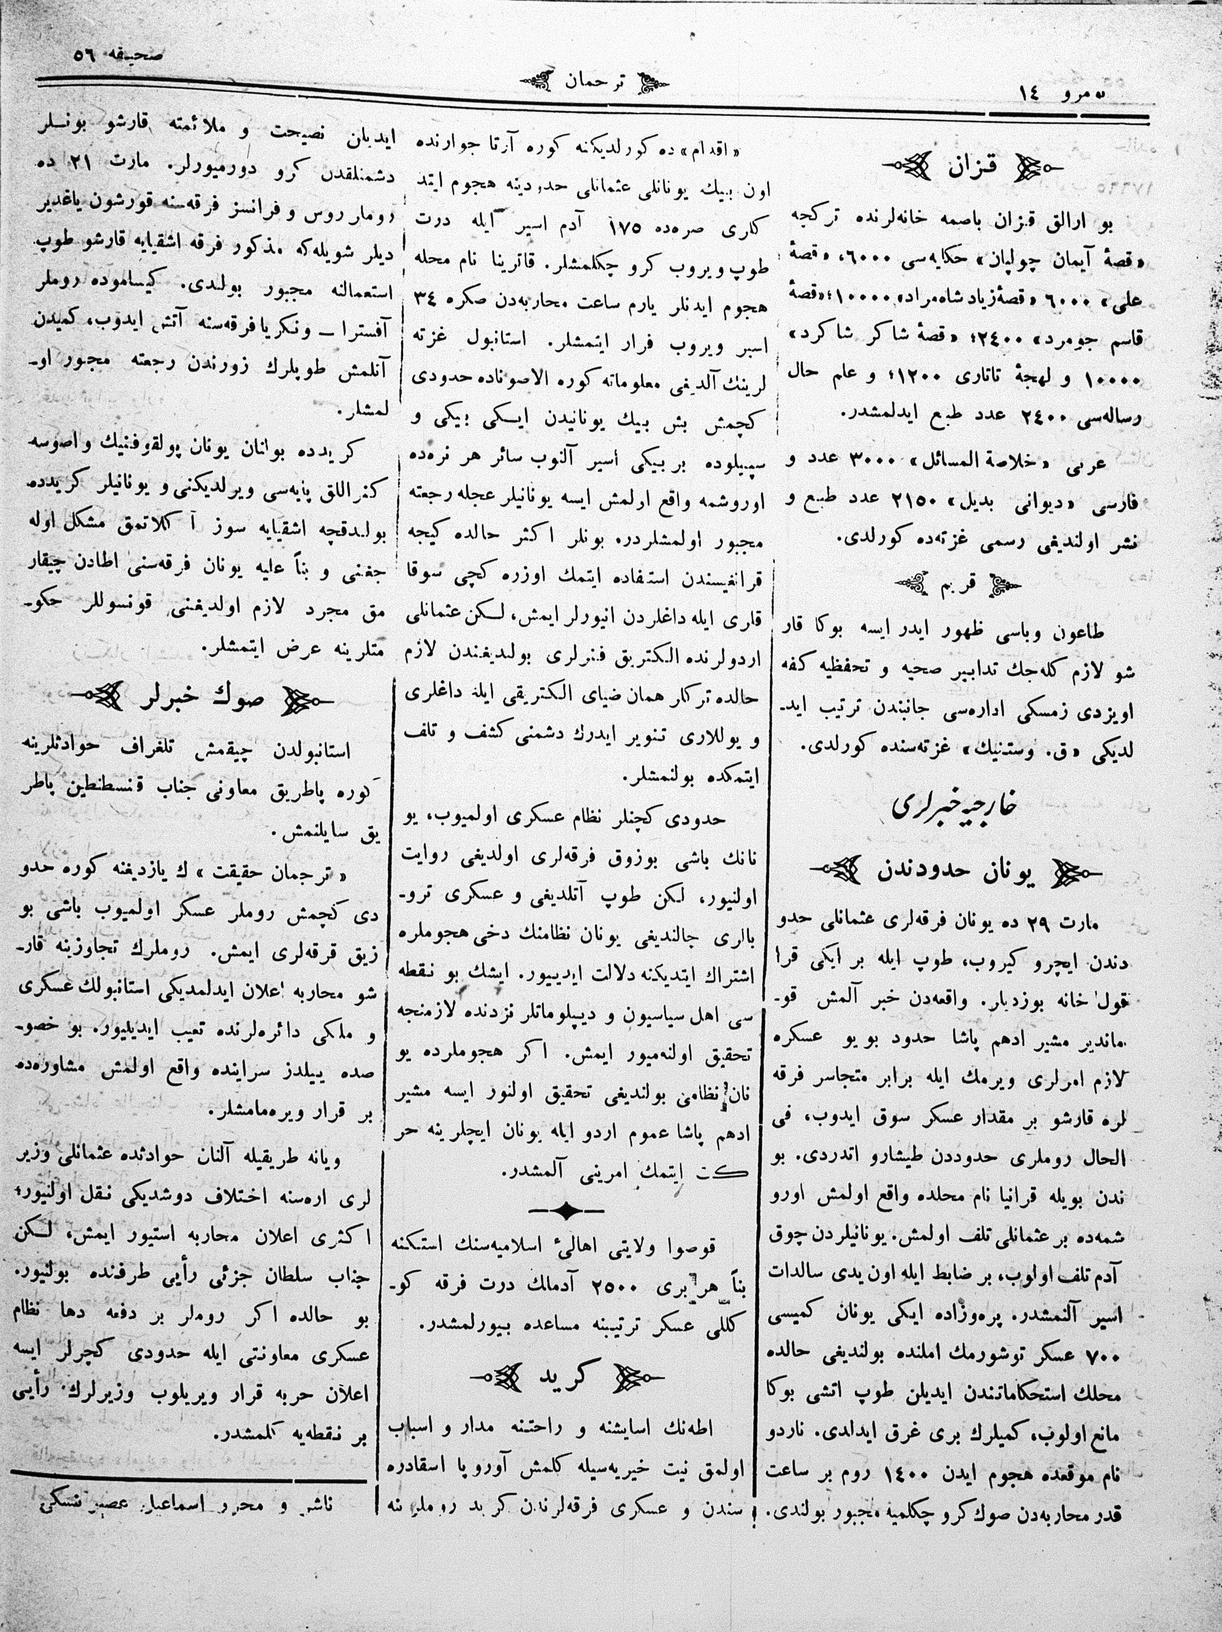 نومرو ١٤
ترجمان
صحیفه ٥٦
قزان
بو ارالق قزان باصمه خانه‌لرنده ترکجه
«قصهٔ آیمان چولپان» حکایه‌سی ٦٠٠٠، «قصهٔ
علی» ٦٠٠٠ «قصهٔ زیاد شاه‌مراد» ١٠٠٠٠؛ «قصهٔ
قاسم جومرد» ٢٤٠٠؛ «قصهٔ شاکر شاکرد»
١٠٠٠٠ و لهجهٔ تاتاری ١٢٠٠؛ و علم حال
رساله‌سی ٢٤٠٠ عدد طبع ایدلمشدر.
عربی «خلاصة المسائل» ٣٠٠٠ عدد و
فارسی «دیوانی بدیل» ٢١٥٠ عدد طبع و
نشر اولندیغی رسمی غزته‌ده کورلدی.
قریم
طاعون وباسی ظهور ایدر ایسه بوکا قار
شو لازم کله‌جك تدابیر صحیه و تحفظیه کفه
اویزدی زمسکی اداره‌سی جانبندن ترتیب اید-
لدیکی «ق. وستنیك» غزته‌سنده کورلدی.
خارجیه خبرلری
یونان حدودندن
مارت ٢٩ ده یونان فرقه‌لری عثمانلی حدو
دندن ایچرو کیروب، طوپ ایله بر ایکی قرا
قول خانه بوزدیلر. واقعه‌دن خبر آلمش قو-
ماندیر مشیر ادهم پاشا حدود بویو عسکره
لازم امرلری ویرمك ایله برابر متجاسر فرقه
لره قارشو بر مقدار عسکر سوق ایدوب، فی
الحال روملری حدوددن طیشارو اتدردی. بو
ندن بویله قرانیا نام محلده واقع اولمش اورو
شمه‌ده بر عثمانلی تلف اولمش. یونانیلردن چوق
آدم تلف اولوب، بر ضابط ایله اون یدی سالدات
اسیر آلنمشدر. پره‌وزاده ایکی یونان کمیسی
٧٠٠ عسکر توشورمك املنده بولندیغی حالده
محلك استحکاماتندن ایدیلن طوپ اتشی بوکا
مانع اولوب، کمیلرك بری غرق ایدلدی. ناردو
نام موقعده هجوم ایدن ١٤٠٠ روم بر ساعت
قدر محاربه‌دن صوك کرو چکلمیه مجبور بولندی.
«اقدام» ده کورلدیکنه کوره آرتا جوارنده
اون بیك یونانلی عثمانلی حدودینه هجوم ایتد
کلری صره‌ده ١٧٥ آدم اسیر ایله درت
طوپ ویروب کرو چکلمشلر. قاترینا نام محله
هجوم ایدنلر یارم ساعت محاربه‌دن صکره ٣٤
اسیر ویروب فرار ایتمشلر. استانبول غزته
لرینك آلدیغی معلوماته کوره الاصوناده حدودی
کچمش بش بیك یونانیدن ایکی بیکی و
سپیلوده بر بیکی اسیر آلنوب سائر هر نره‌ده
اوروشمه واقع اولمش ایسه یونانیلر عجله رجعته
مجبور اولمشلردر. بونلر اکثر حالده کیجه
قرانغیسندن استفاده ایتمك اوزره کچی سوقا
قلری ایله داغلردن انیورلر ایمش، لکن عثمانلی
اردولرنده الکتریق فنرلری بولندیغندن لازم
حالده ترکلر همان ضیای الکتریقی ایله داغلری
و یوللاری تنویر ایدرك دشمنی کشف و تلف
ایتمکده بولنمشلر.
حدودی کچنلر نظام عسکری اولمیوب، یو
نانك باشی بوزوق فرقه‌لری اولدیغی روایت
اولنیور، لکن طوپ آتلدیغی و عسکری ترو-
بالری جالندیغی یونان نظامنك دخی هجوملره
اشتراك ایتدیکنه دلالت ایدییور. ایشك بو نقطه
سی اهل سیاسیون و دیپلوماتلر نزدنده لازمنجه
تحقیق اولنه‌میور ایمش. اکر هجوملرده یو
نان نظامی بولندیغی تحقیق اولنور ایسه مشیر
ادهم پاشا عموم اردو ایله یونان ایچلرینه حر
کت ایتمك امرینی آلمشدر.
قوصوا ولایتی اهالیٔ اسلامیه‌سنك استکنه
بناً هر بری ٢٥٠٠ آدمالك درت فرقه کو-
کللی عسکر ترتیبنه مساعده بیورلمشدر.
کرید
اطه‌نك اسایشنه و راحتنه مدار و اسباب
اولمق نیت خیریه‌سیله کلمش آوروپا اسقادره
سندن و عسکری فرقه‌لرندن کرید روملرینه
ایدیلن نصیحت و ملائمته قارشو بونلر
دشمنلقدن کرو دورمیورلر. مارت ٢١ ده
روملر روس و فرانسز فرقه‌سنه قورشون یاغدیر
دیلر شویله‌که مذکور فرقه اشقیایه قارشو طوپ
استعمالنه مجبور بولندی. کیساموده روملر
آفسترا — ونکریا فرقه‌سنه آتش ایدوب، کمیدن
آتلمش طوپلرك زورندن رجعته مجبور او-
لمشلر.
کریدده بولنان یونان پولقوفنیك واصوسه
کنراللق پایه‌سی ویرلدیکنی و یونانیلر کریدده
بولندقچه اشقیایه سوز آکلاتمق مشکل اوله
جغنی و بناً علیه یونان فرقه‌سنی اطادن چیقار
مق مجرد لازم اولدیغنی قونسوللر حکو-
متلرینه عرض ایتمشلر.
صوك خبرلر
استانبولدن چیقمش تلغراف حوادثلرینه
کوره پاطریق معاونی جناب قنسطنطین پاطر
یق سایلنمش.
«ترجمان حقیقت» ك یازدیغنه کوره حدو
دی کچمش روملر عسکر اولمیوب باشی بو
زیق قرقه‌لری ایمش. روملرك تجاوزینه قار-
شو محاربه اعلان ایدلمدیکی استانبولك عسکری
و ملکی دائره‌لرنده تعیب ایدیلیور. بو خصو-
صده ییلدز سراینده واقع اولمش مشاوره‌ده
بر قرار ویره‌مامشلر.
ویانه طریقیله آلنان حوادثده عثمانلی وزیر
لری اره‌سنه اختلاف دوشدیکی نقل اولنیور؛
اکثری اعلان محاربه استیور ایمش، لکن
جناب سلطان جزئی رأیی طرفنده بولنیور.
بو حالده اکر روملر بر دفعه دها نظام
عسکری معاونتی ایله حدودی کچرلر ایسه
اعلان حربه قرار ویریلوب وزیرلرك رأیی
بر نقطه‌یه کلمشدر.
ناشر و محرر اسماعیل غصپرینسکی